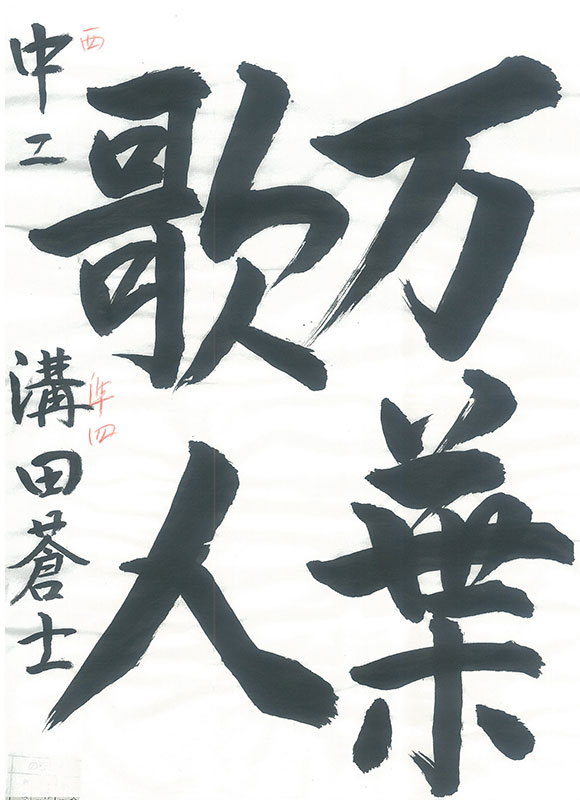 万葉
歌人
中二
溝田蒼士
西
準四